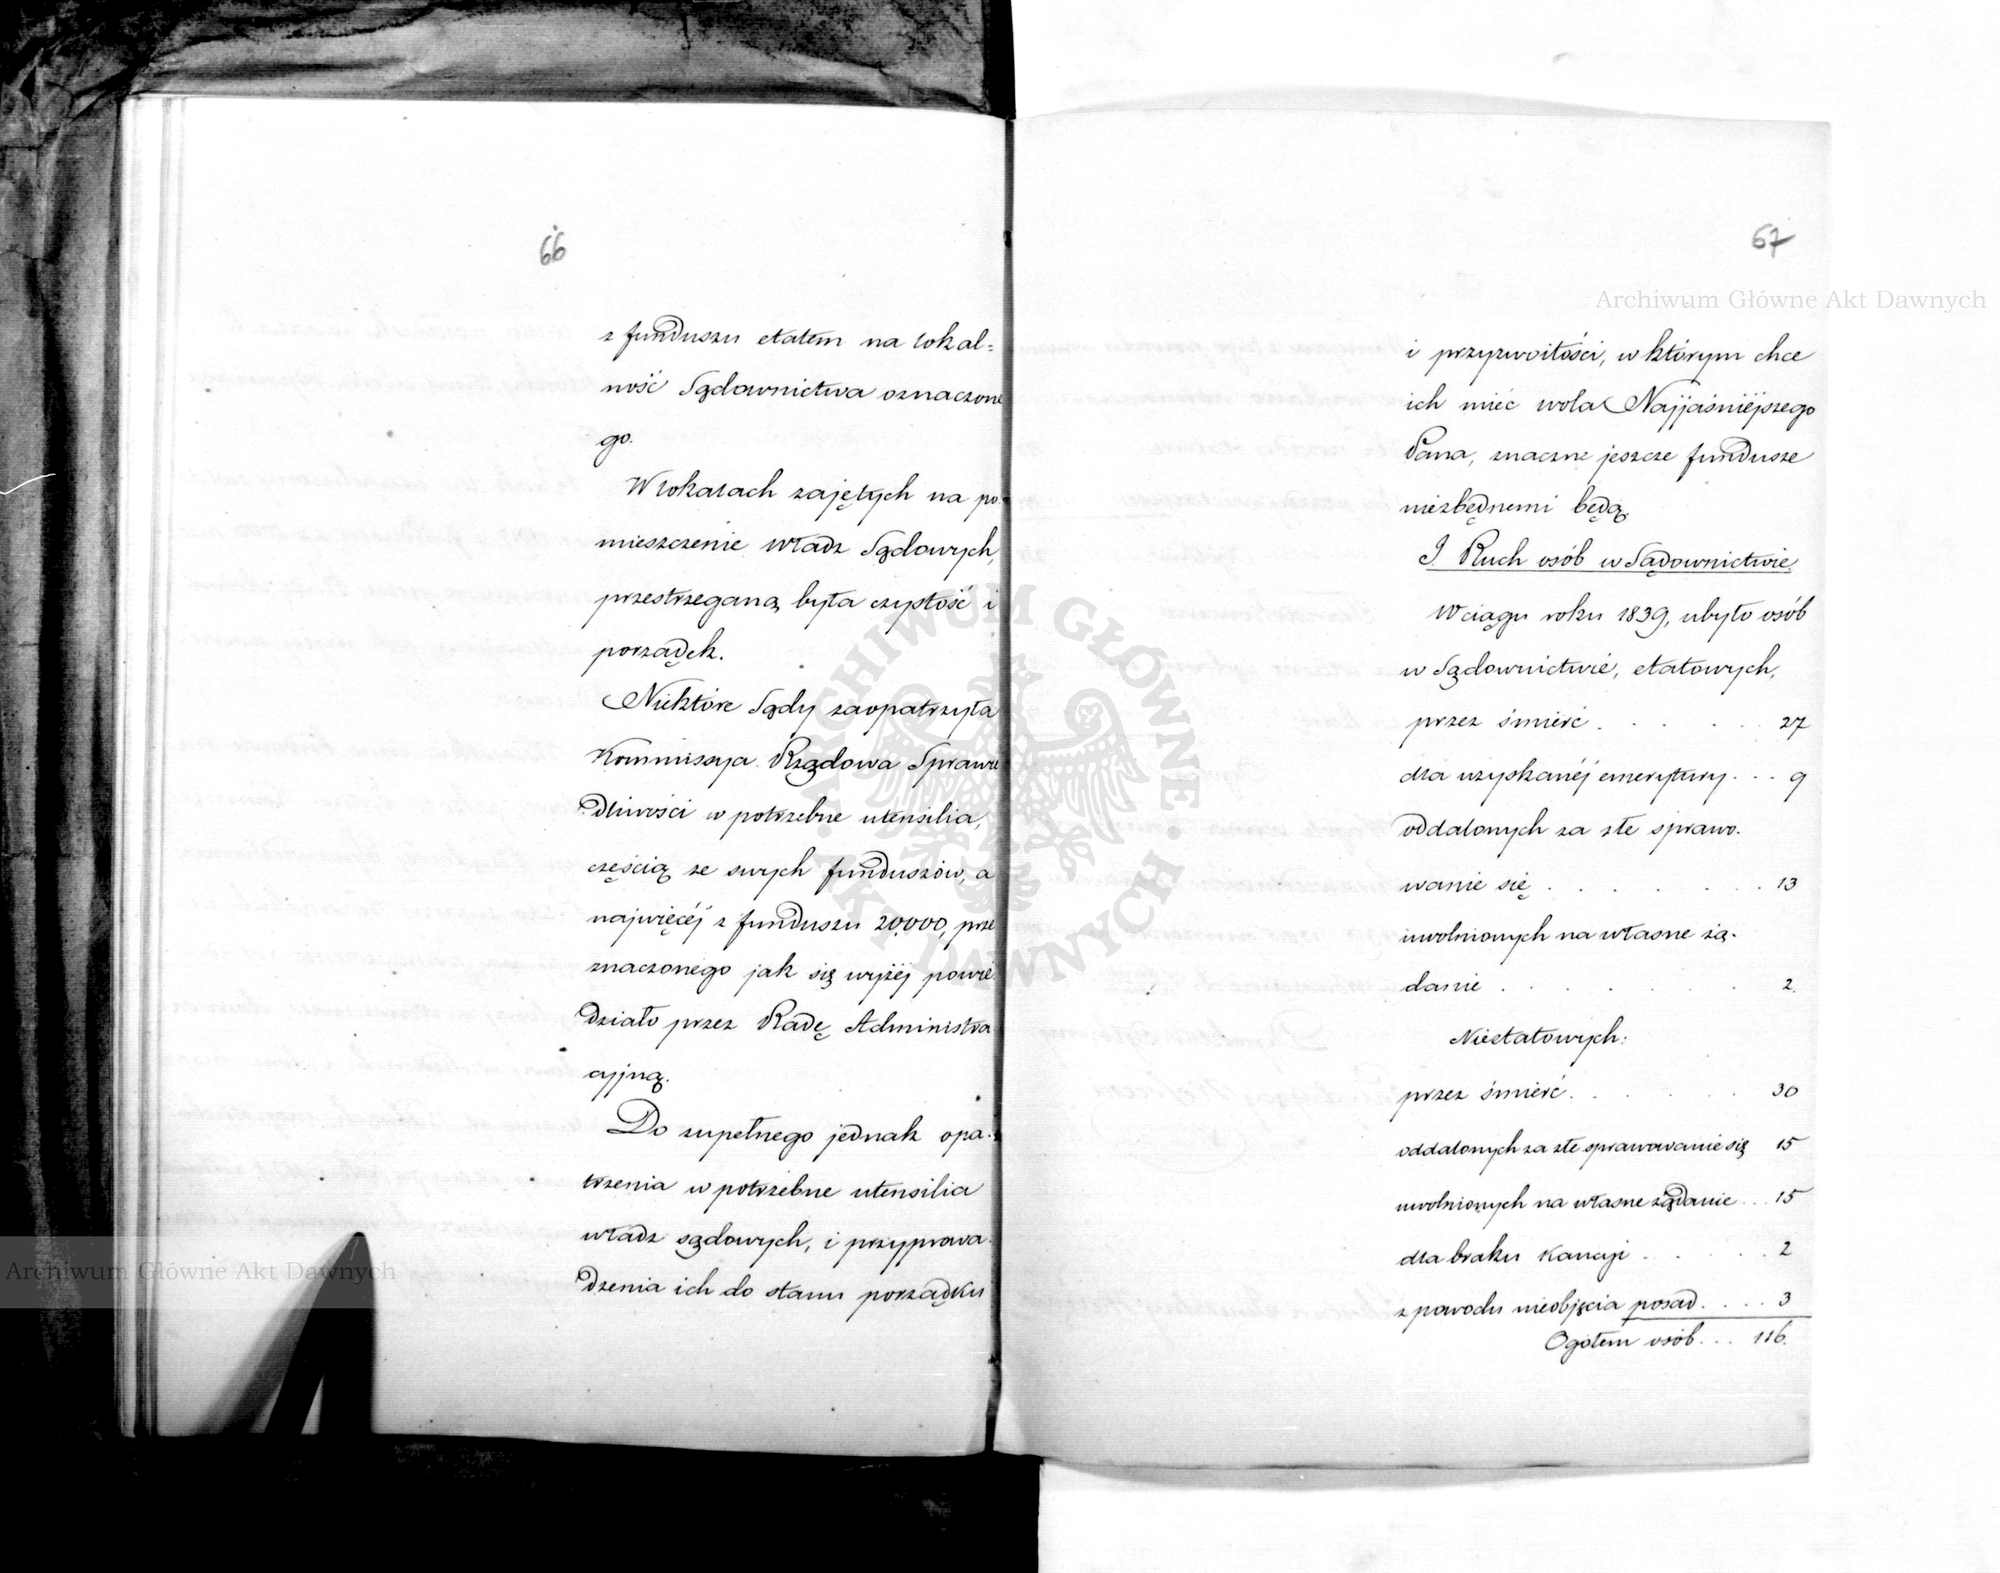 66
z funduszu etatem na lokal=
ność Sądownictwa oznaczone
go.
W lokalach zajętych na po=
mieszczenie władz Sądowych,
przestrzeganą była czystość i
porządek.
Niektóre Sądy zaopatrzyła
Kommissya Rządowa Sprawie
dliwości w potrzebne utensilia,
częścią ze swych funduszów, a
najwięcéj z funduszu 20,000, prze
znaczonego jak się wyżéj powie
działo przez Radę Administra
cyjną.
Do zupełnego jednak opa-
trzenia w potrzebne utensilia
władz sądowych, i przyprowa-
dzenia ich do stanu porządku
67
i przyzwoitości, w którym chce
ich mieć wola Najjaśniéjszego
Pana, znaczne jeszcze fundusze
niezbędnemi będą.
I. Ruch osób w Sądownictwie.
W ciągu roku 1839, ubyło osób
w Sądownictwie, etatowych,
przez śmierć . . . . . 27
dla uzyskanéj emerytury . . . 9
oddalonych za złe sprawo-
wanie się . . . . . . 13
uwolnionych na własne żą-
danie . . . . . . 2.
Nieetatowych:
przez śmierć . . . . . 30
oddalonych za złe sprawowanie się 15
uwolnionych na własne żądanie . . . 15
dla braku kaucji . . . . . 2
z powodu nieobjęcia posad . . . . 3
Ogółem osób . . . 116.
Archiwum Główne Akt Dawnych
Archiwum Główne Akt Dawnych
ARCHIWUM GŁÓWNE AKT DAWNYCH